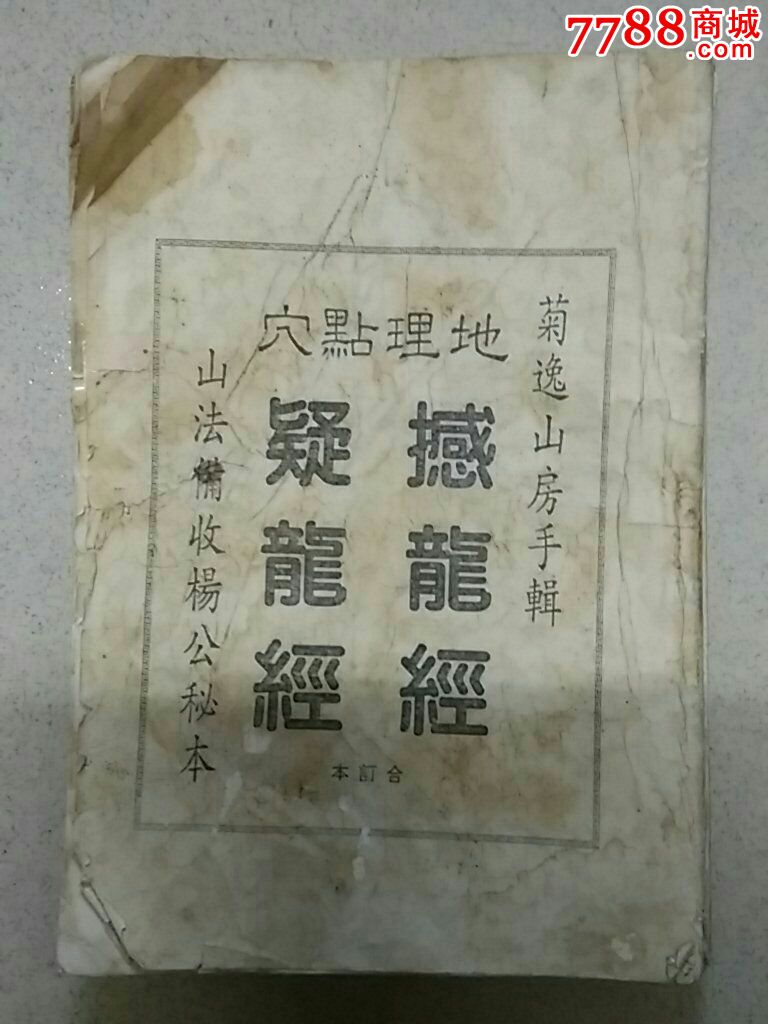 7788商城
.com
菊逸山房手輯
地理點穴
撼龍經
疑龍經
合訂本
山法備收楊公秘本